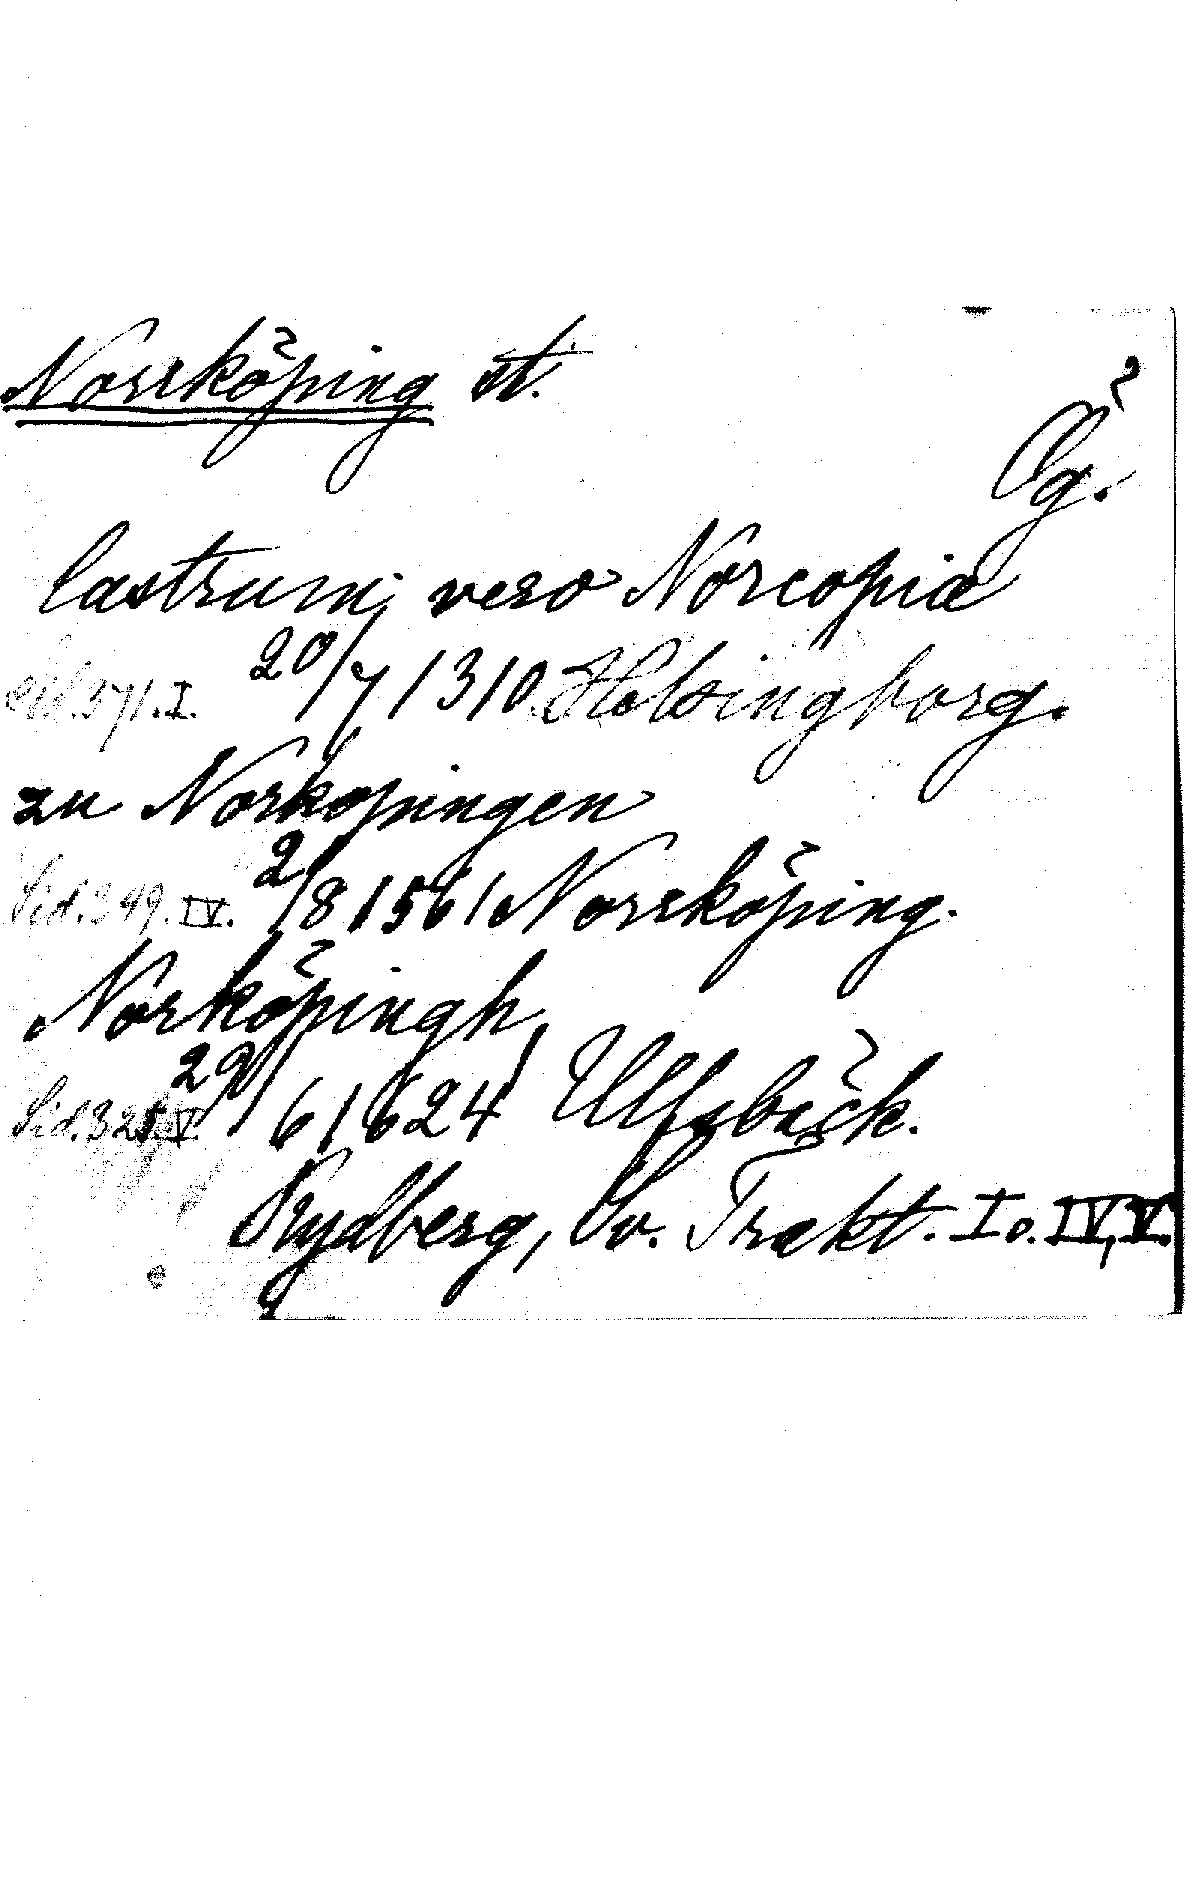 Norrköping st.
Ög.
Castrum vero Norcopia
Sid. 371. I. 20/7 1310 Helsingborg.
zu Norkopingen
Sid. 349. IV. 2/8 1561 Norrköping.
Norköpingh
Sid. 325 V. 29/6 1624 Ulfsbäck.
Rydberg, Sv. Trakt. I o. IV, V.